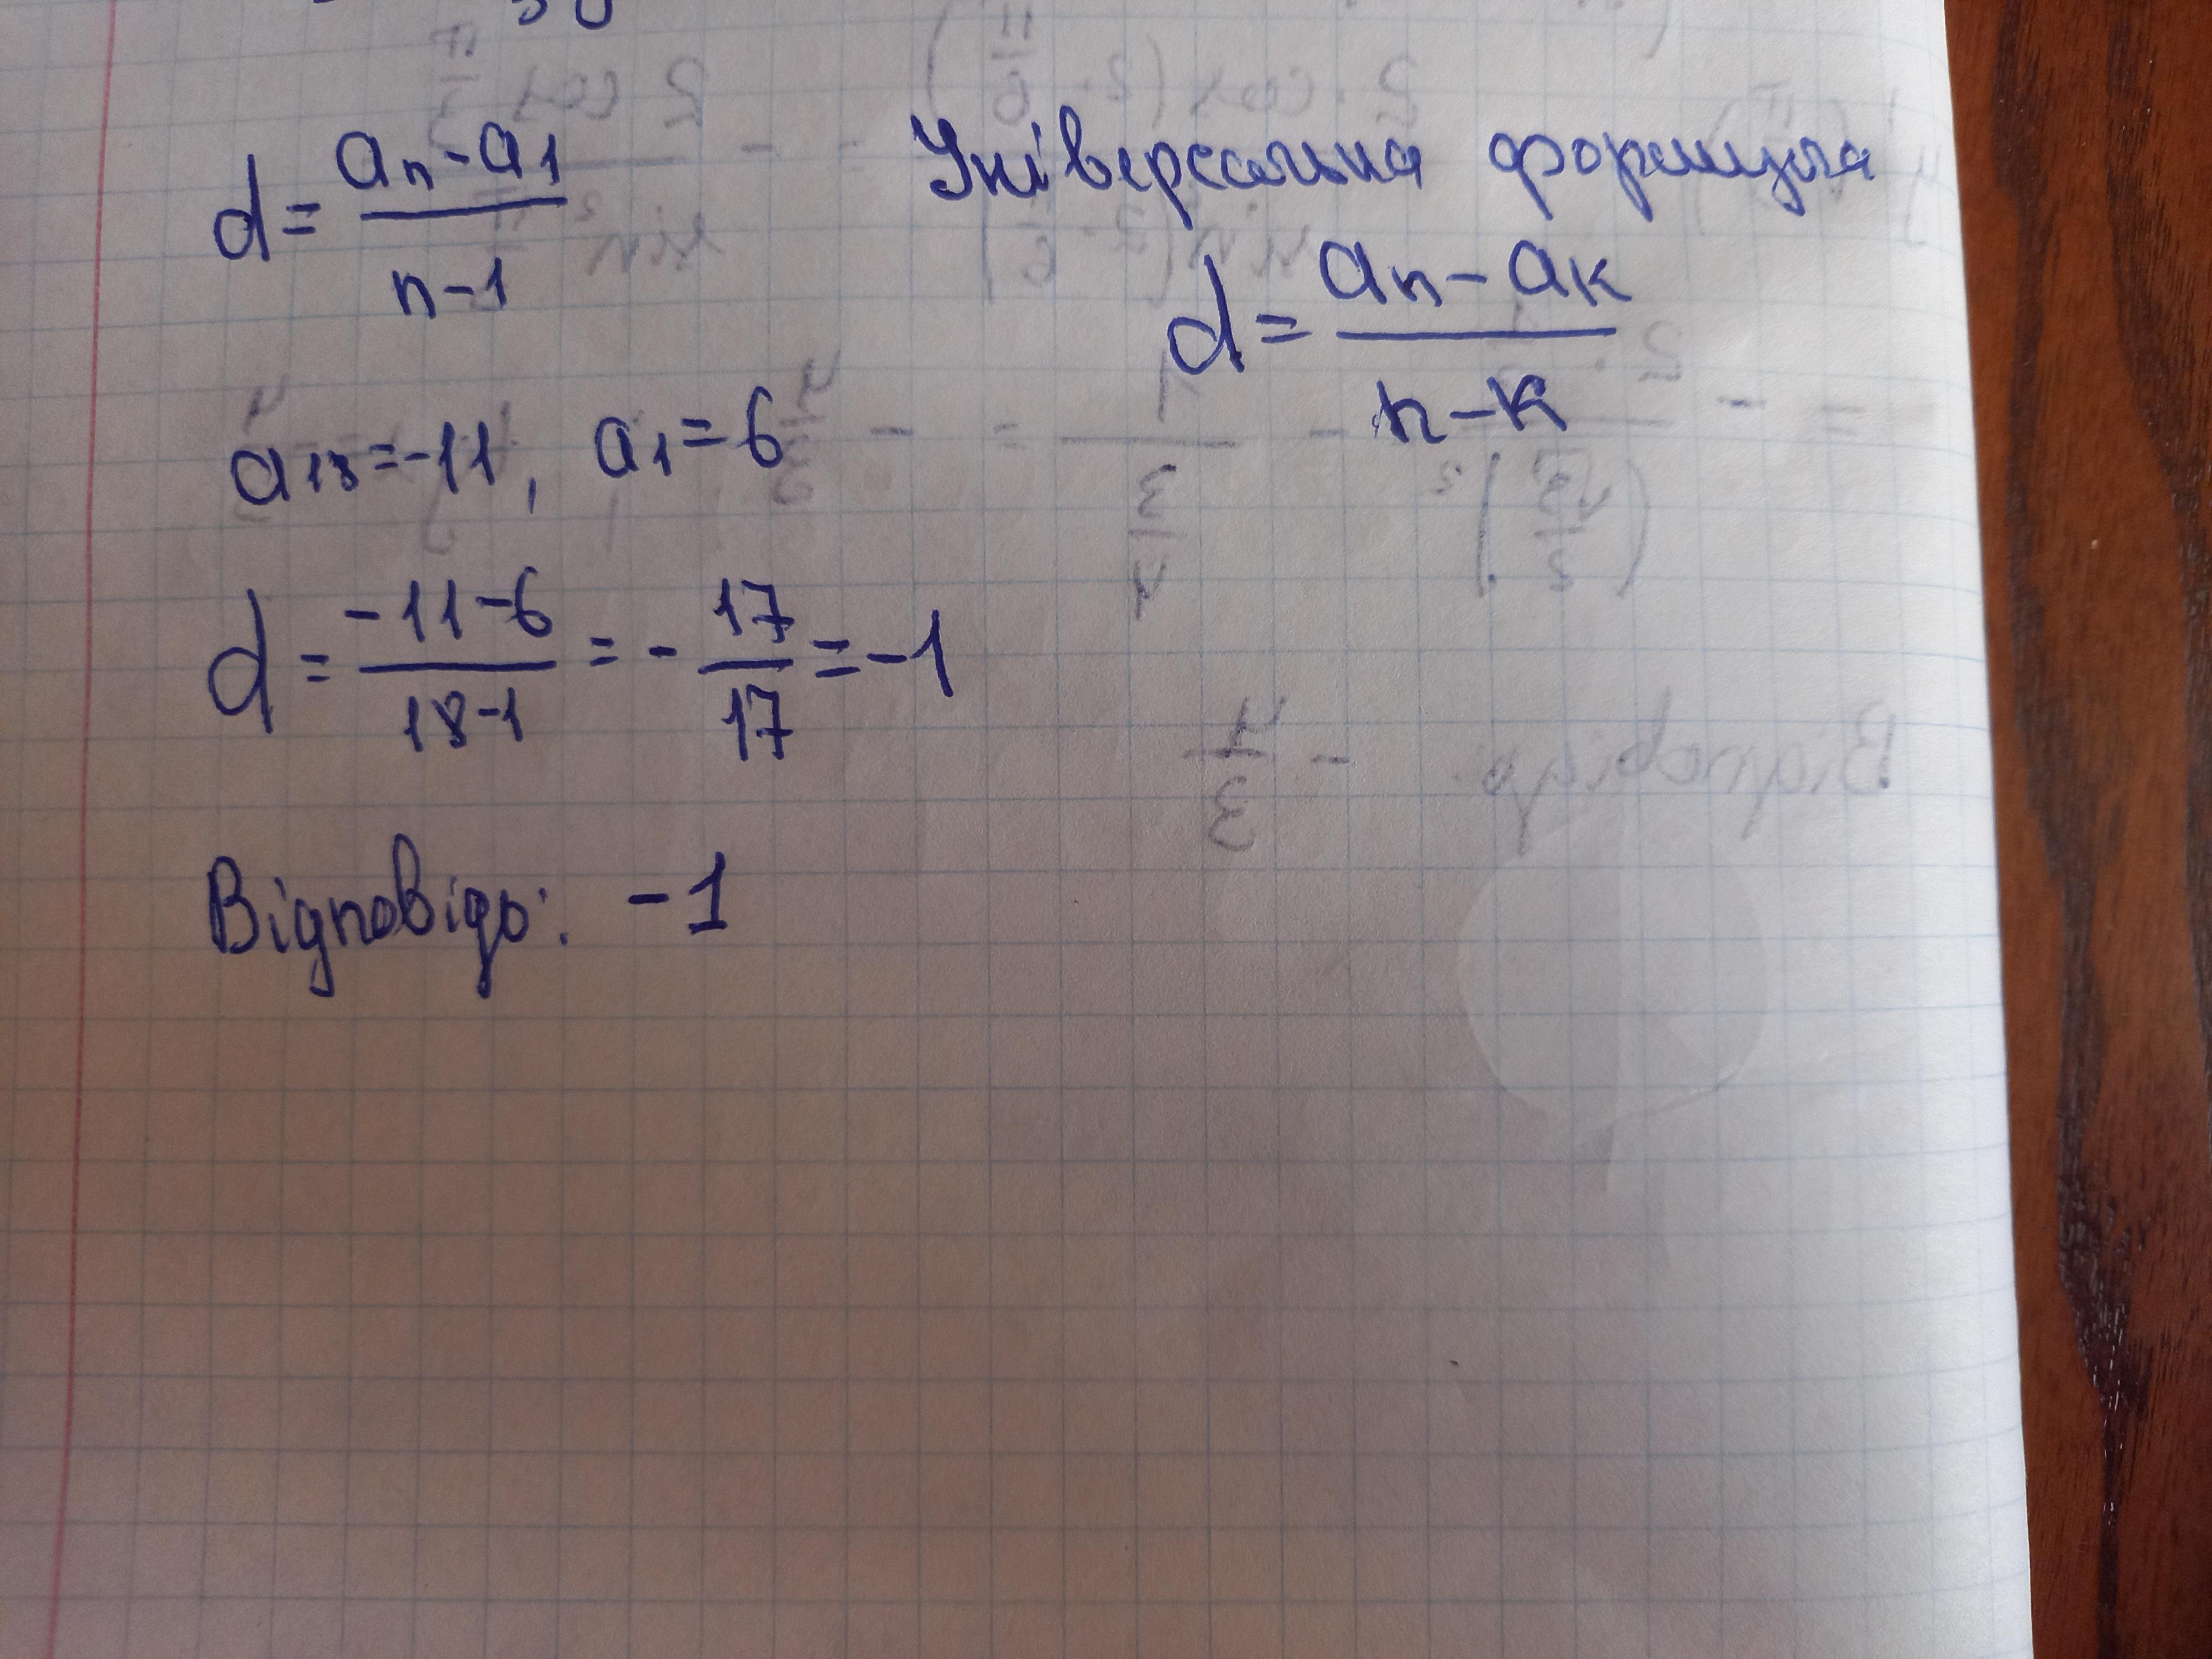 d = (aₙ - a₁) / (n - 1)
Універсальна формула
d = (aₙ - aₖ) / (n - k)
a₁₈ = -11, a₁ = 6
d = (-11 - 6) / (18 - 1) = - 17/17 = -1
Відповідь: -1